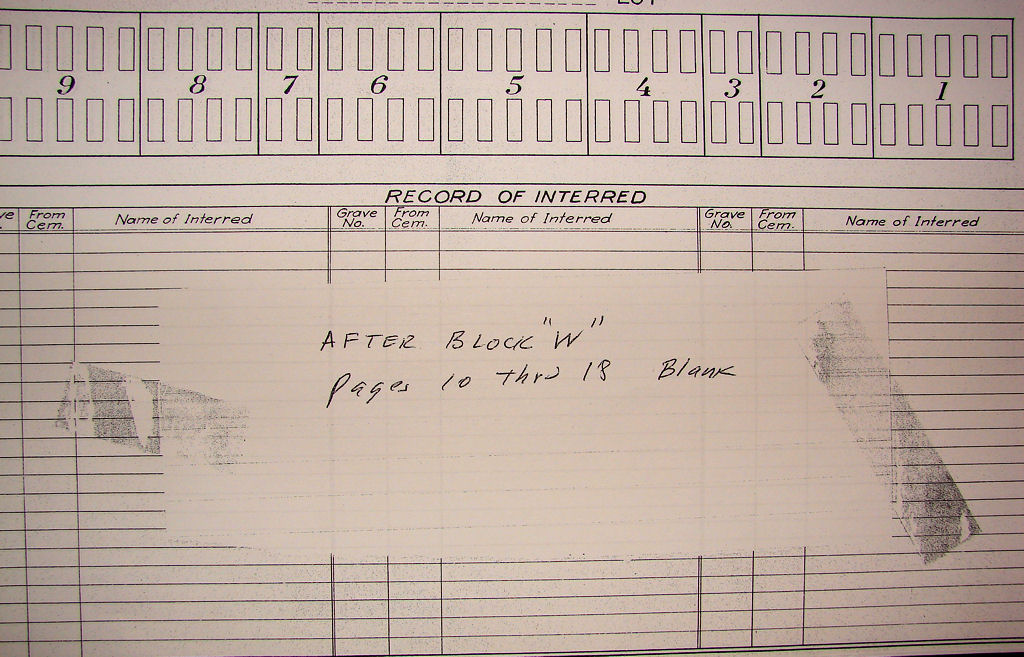 9 8 7 6 5 4 3 2 1
RECORD OF INTERRED
From Cem. Name of Interred Grave No. From Cem. Name of Interred Grave No. From Cem. Name of Interred
AFTER BLOCK "W"
Pages 10 thru 18 Blank